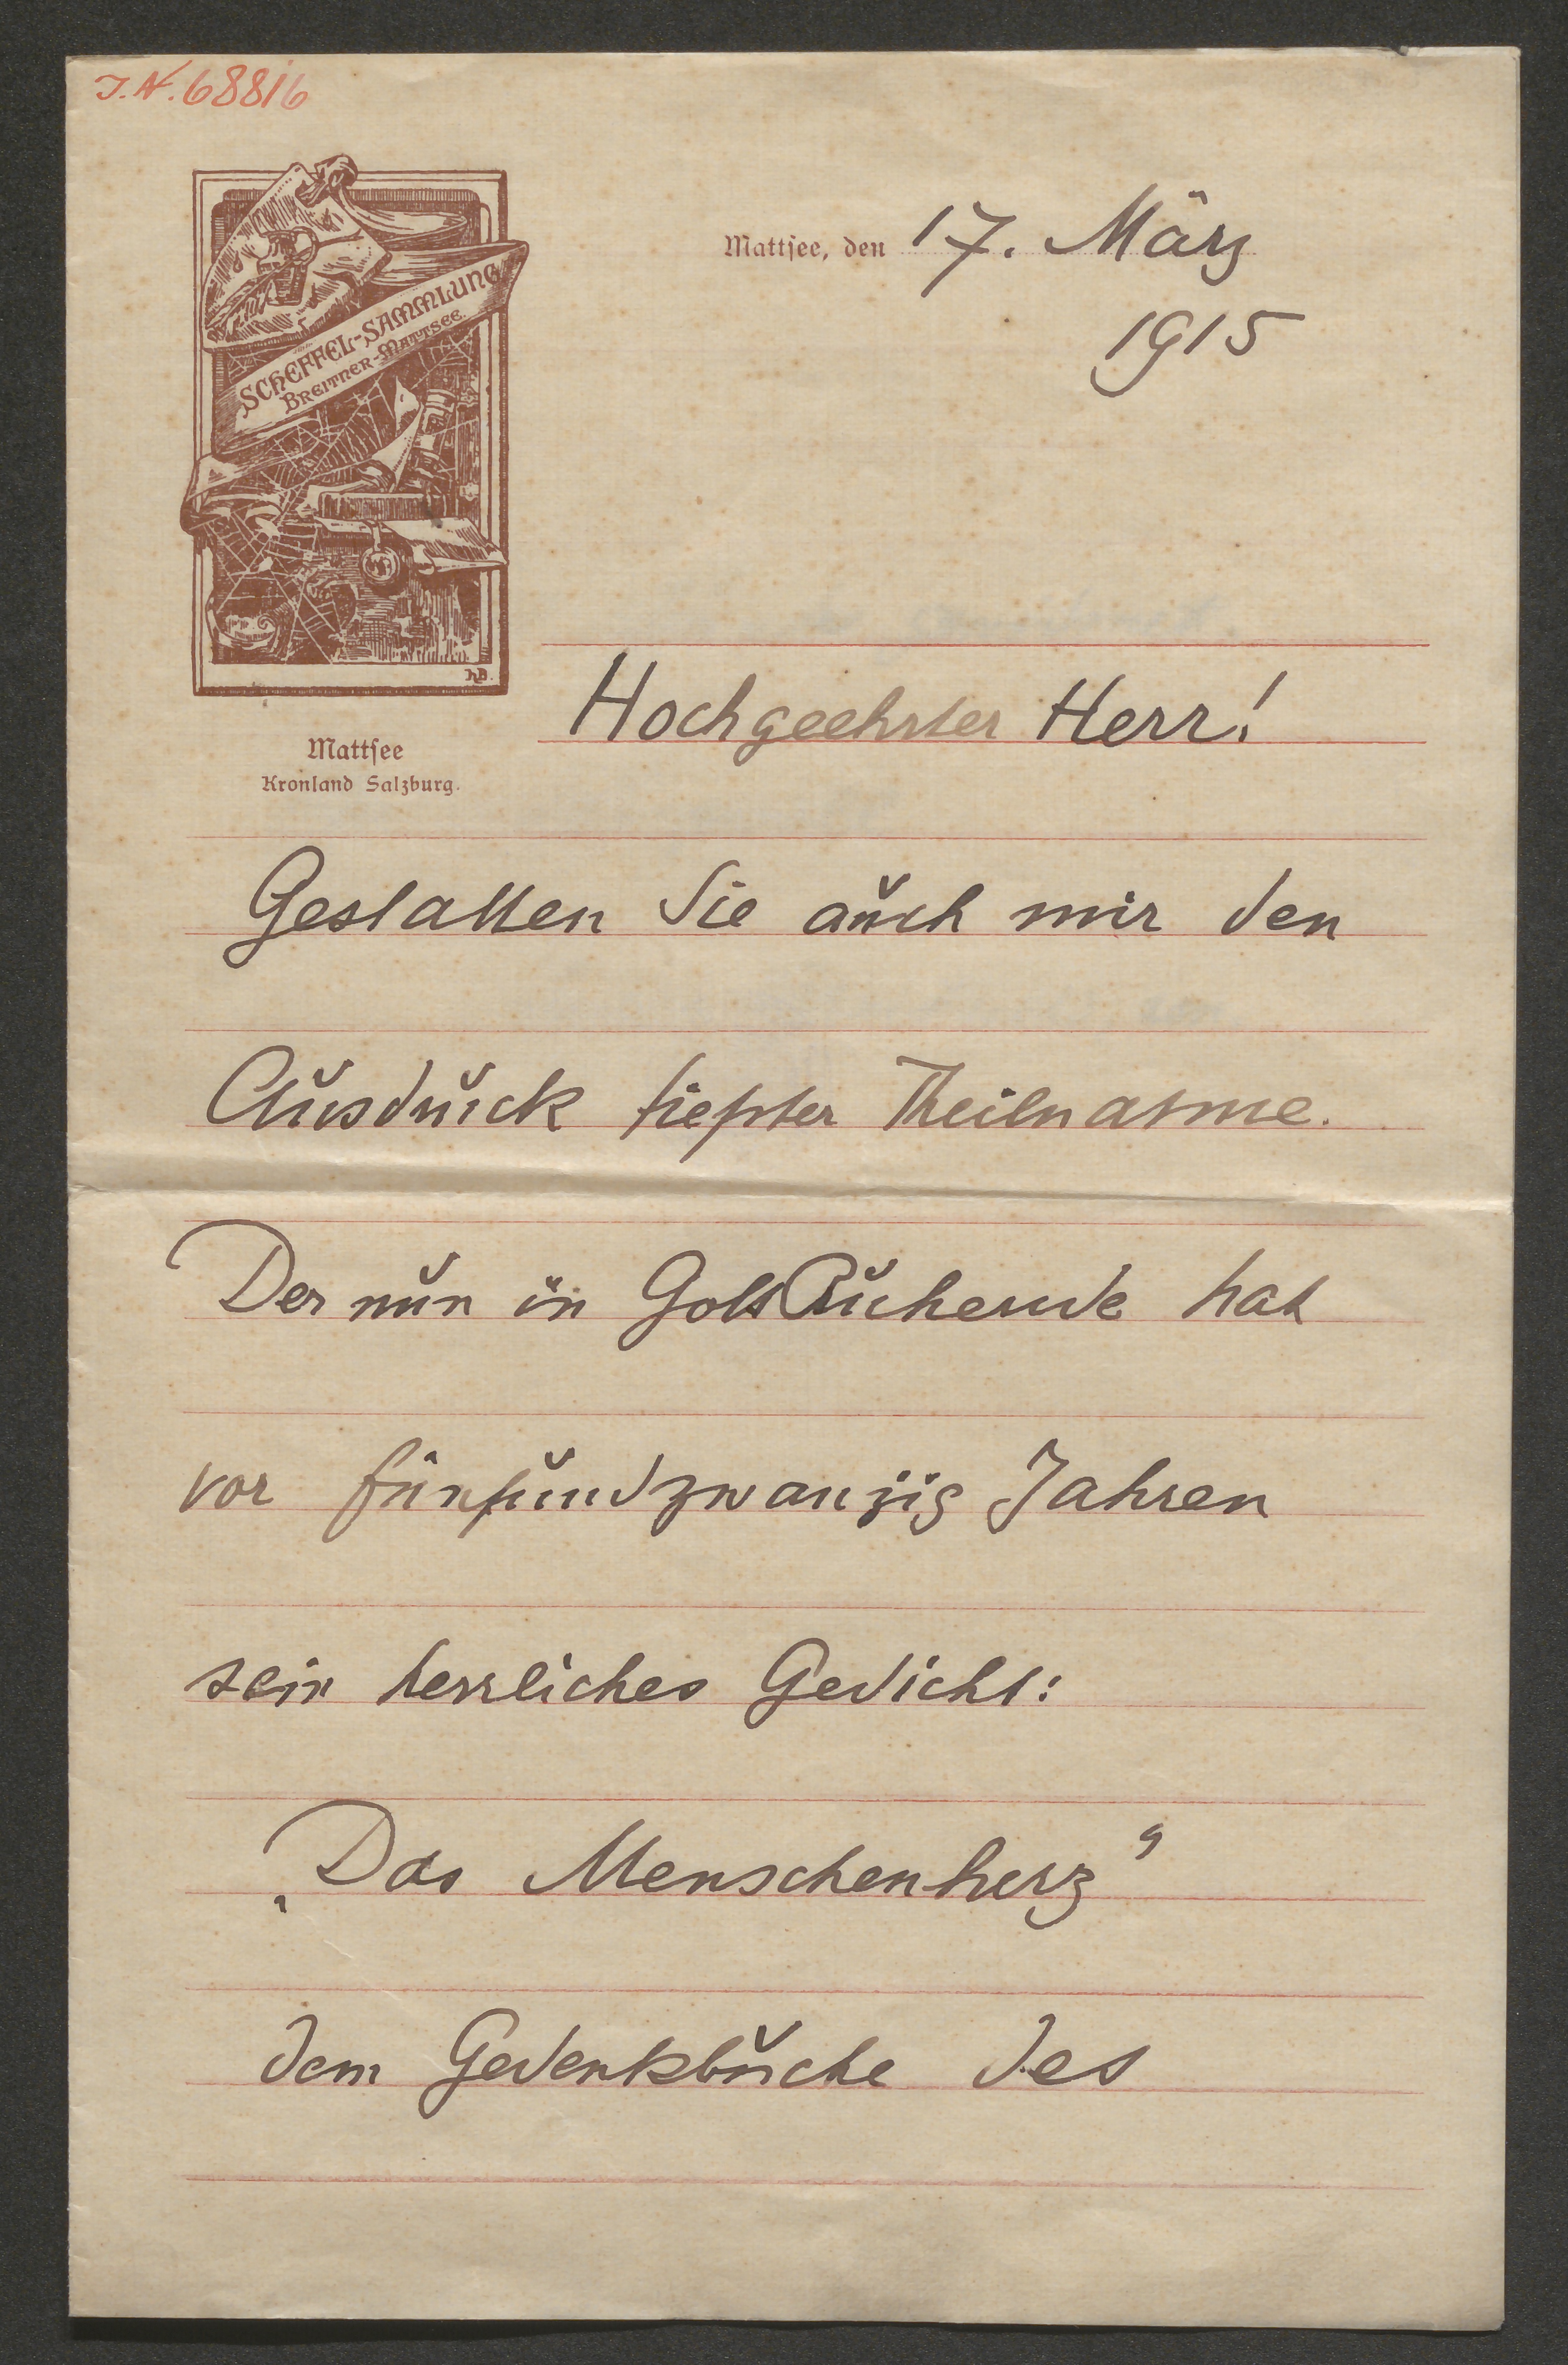 J.N. 68816
SCHEFFEL-SAMMLUNG
BREITNER-MATTSEE.
Mattsee, den 17. März
1915
hB.
Mattsee
Kronland Salzburg.
Hochgeehrter Herr!
Gestatten Sie auch mir den
Ausdruck tiefster Theilname.
Der nun in Gott Ruhende hat
vor fünfundzwanzig Jahren
sein herrliches Gedicht:
„Das Menschenherz“
dem Gedenkbuche des